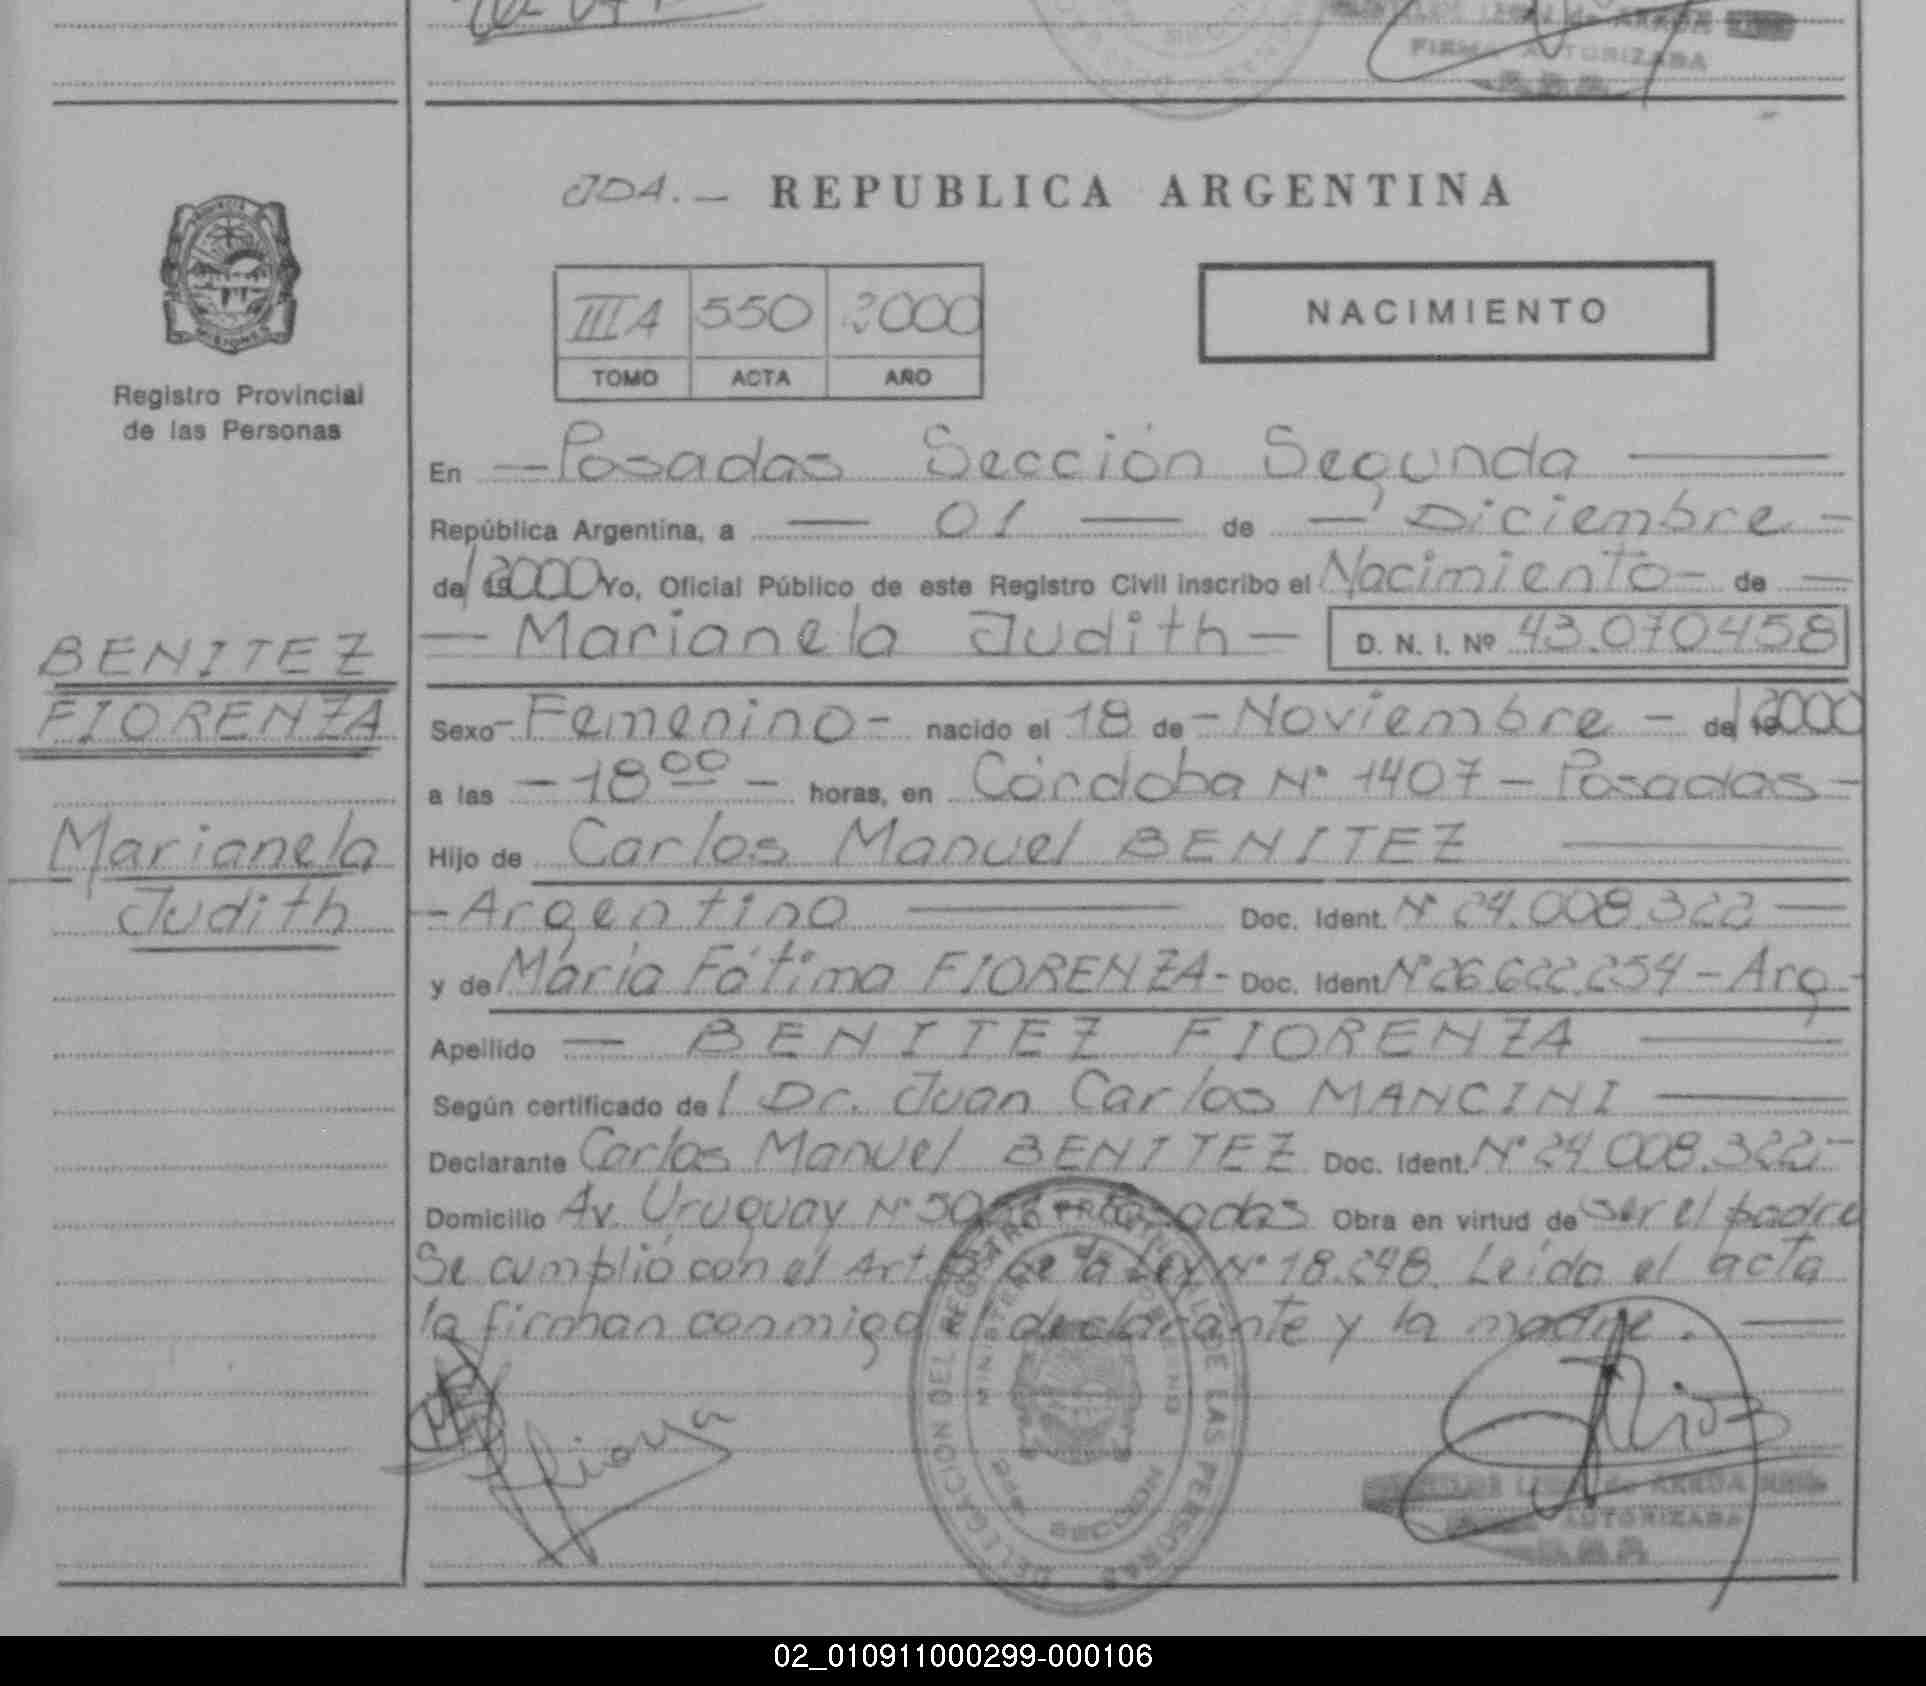 FIRMA AUTORIZADA
JDA.— REPUBLICA ARGENTINA
III A 550 2000
TOMO ACTA AÑO
NACIMIENTO
Registro Provincial
de las Personas
BENITEZ
FIORENZA
Marianela
Judith
En — Posadas Sección Segunda —
República Argentina, a — 01 — de — Diciembre —
de/ 2000 Yo, Oficial Público de este Registro Civil inscribo el Nacimiento — de —
— Marianela Judith — D. N. I. Nº 43.070458
Sexo - Femenino - nacido el 18 de - Noviembre - de/ 2000
a las - 18 00 - horas, en Córdoba Nº 1407 - Posadas -
Hijo de Carlos Manuel BENITEZ —
- Argentino — Doc. Ident. Nº 24.008.322 —
y de María Fátima FIORENZA - Doc. Ident Nº 26.622.254 - Arg -
Apellido — BENITEZ FIORENZA —
Según certificado de/ Dr. Juan Carlos MANCINI —
Declarante Carlos Manuel BENITEZ Doc. Ident. Nº 24.008.322 -
Domicilio Av. Uruguay Nº Posadas Obra en virtud de ser el padre
Se cumplió con el Art de la Ley Nº 18.248. Leída el acta
la firman conmigo el declarante y la madre. —
DELEGACION DEL REGISTRO PROVINCIAL DE LAS PERSONAS
MINISTERIO DE GOBIERNO
SECCION
AUTORIZADA
02_010911000299-000106